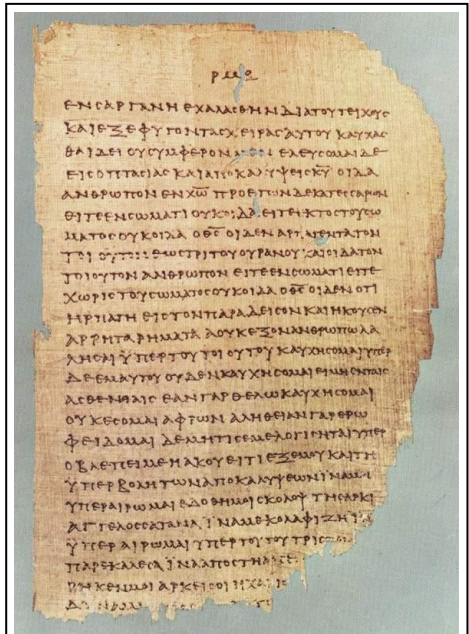 ΡΜΘ
ΕΝϹΑΡΓΑΝΗΕΧΑΛΑϹΘΗΝΔΙΑΤΟΥΤΕΙΧΟΥϹ
ΚΑΙΕΞΕΦΥΓΟΝΤΑϹΧΕΙΡΑϹΑΥΤΟΥΚΑΥΧΑϹ
ΘΑΙΔΕΙΟΥϹΥΜΦΕΡΟΝΜΕΝΕΛΕΥϹΟΜΑΙΔΕ
ΕΙϹΟΠΤΑϹΙΑϹΚΑΙΑΠΟΚΑΛΥΨΕΙϹΚ̅Υ̅ΟΙΔΑ
ΑΝΘΡΩΠΟΝΕΝΧ̅Ω̅ΠΡΟΕΤΩΝΔΕΚΑΤΕϹϹΑΡΩΝ
ΕΙΤΕΕΝϹΩΜΑΤΙΟΥΚΟΙΔΑΕΙΤΕΕΚΤΟϹΤΟΥϹΩ
ΜΑΤΟϹΟΥΚΟΙΔΑΟΘ̅Ϲ̅ΟΙΔΕΝΑΡΠΑΓΕΝΤΑΤΟΝ
ΤΟΙΟΥΤΟΝΕΩϹΤΡΙΤΟΥΟΥΡΑΝΟΥΚΑΙΟΙΔΑΤΟΝ
ΤΟΙΟΥΤΟΝΑΝΘΡΩΠΟΝΕΙΤΕΕΝϹΩΜΑΤΙΕΙΤΕ
ΧΩΡΙϹΤΟΥϹΩΜΑΤΟϹΟΥΚΟΙΔΑΟΘ̅Ϲ̅ΟΙΔΕΝΟΤΙ
ΗΡΠΑΓΗΕΙϹΤΟΝΠΑΡΑΔΕΙϹΟΝΚΑΙΗΚΟΥϹΕΝ
ΑΡΡΗΤΑΡΗΜΑΤΑΑΟΥΚΕΞΟΝΑΝΘΡΩΠΩΛΑ
ΛΗϹΑΙΫΠΕΡΤΟΥΤΟΙΟΥΤΟΥΚΑΥΧΗϹΟΜΑΙΥΠΕΡ
ΔΕΕΜΑΥΤΟΥΟΥΔΕΝΚΑΥΧΗϹΟΜΑΙΕΙΜΗΕΝΤΑΙϹ
ΑϹΘΕΝΕΙΑΙϹΕΑΝΓΑΡΘΕΛΩΚΑΥΧΗϹΟΜΑΙ
ΟΥΚΕϹΟΜΑΙΑΦΡΩΝΑΛΗΘΕΙΑΝΓΑΡΕΡΩ
ΦΕΙΔΟΜΑΙΔΕΜΗΤΙϹΕΜΕΛΟΓΙϹΗΤΑΙΥΠΕΡ
ΟΒΛΕΠΕΙΜΕΗΑΚΟΥΕΙΤΙΕΞΕΜΟΥΚΑΙΤΗ
ΫΠΕΡΒΟΛΗΤΩΝΑΠΟΚΑΛΥΨΕΩΝΪΝΑΜΗ
ΥΠΕΡΑΙΡΩΜΑΙΕΔΟΘΗΜΟΙϹΚΟΛΟΨΤΗϹΑΡΚΙ
ΑΓΓΕΛΟϹϹΑΤΑΝΑΪΝΑΜΕΚΟΛΑΦΙΖΗ
ΫΠΕΡΑΙΡΩΜΑΙΥΠΕΡΤΟΥΤΟΥΤΡΙϹ
ΠΑΡΕΚΑΛΕϹΑΪΝΑΑΠΟϹΤΗ
ΡΗΚΕΝΜΟΙΑΡΚΕΙϹΟΙΗΧΑΡΙϹ